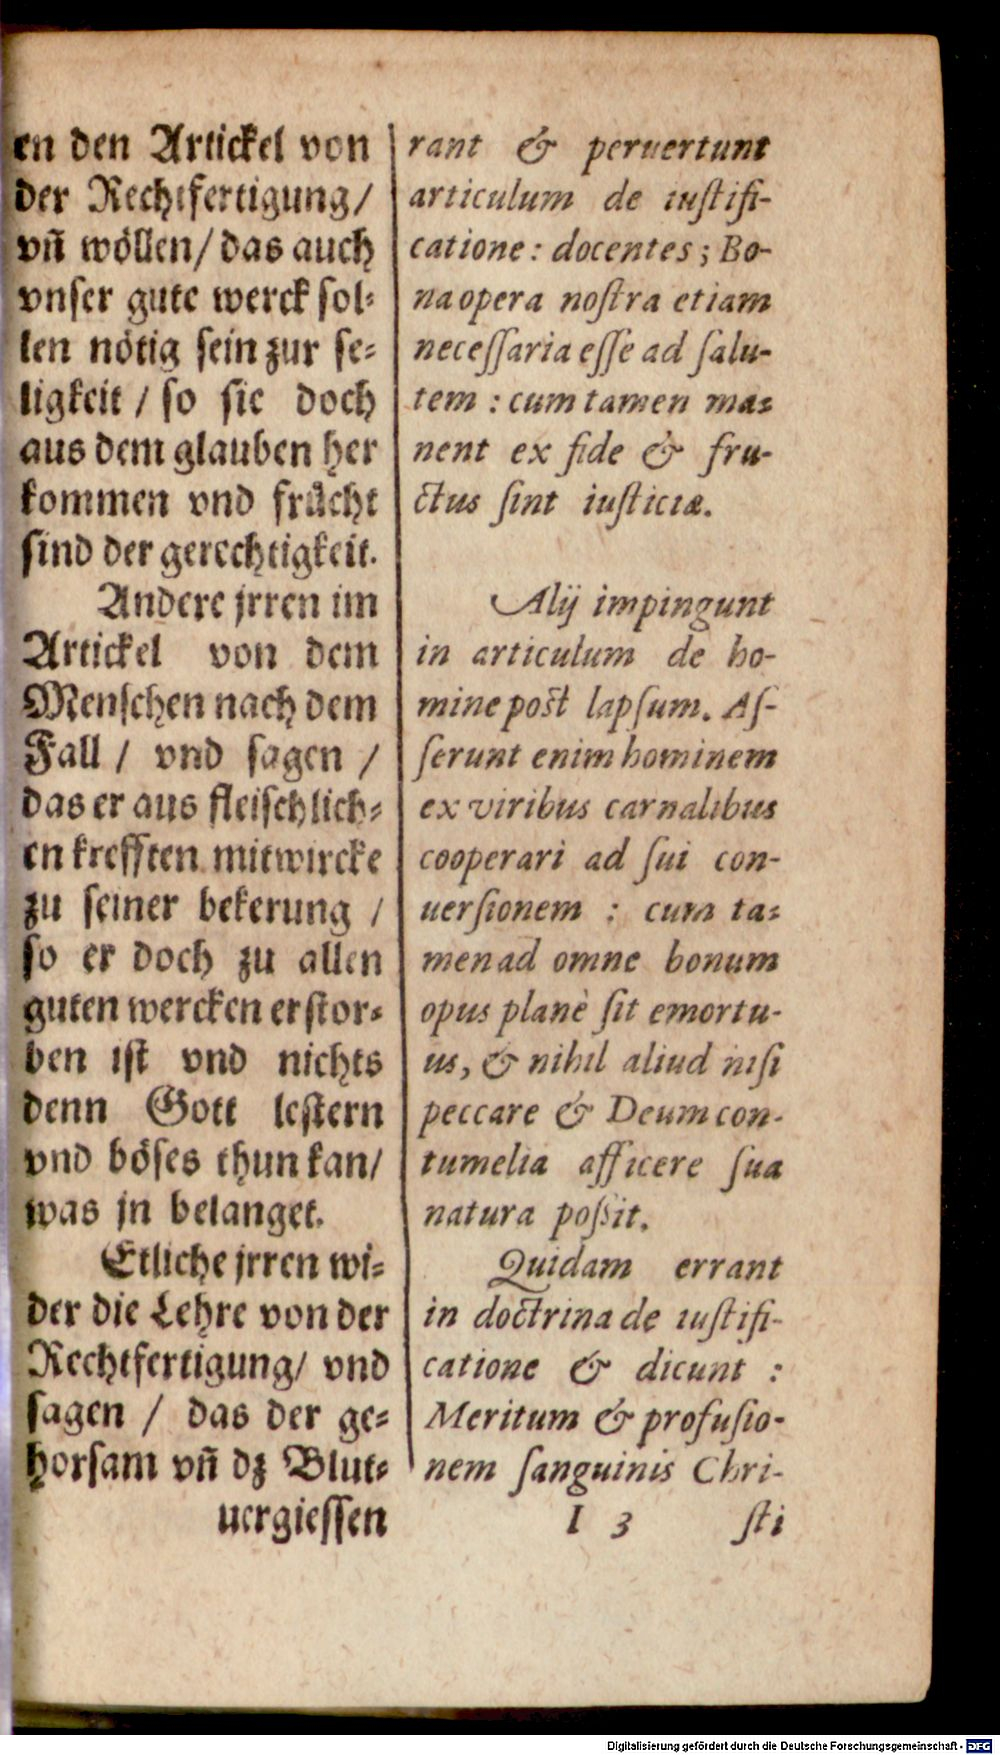 en den Artickel von
der Rechtfertigung/
vn̄ wöllen/ das auch
vnser gute werck sol⸗
len nötig sein zur se⸗
ligkeit / so sie doch
aus dem glauben her
kommen vnd frücht
sind der gerechtigkeit.
Andere jrren im
Artickel von dem
Menschen nach dem
Fall / vnd sagen /
das er aus fleischlich⸗
en krefften mitwircke
zu seiner bekerung /
so er doch zu allen
guten wercken erstor⸗
ben ist vnd nichts
denn Gott lestern
vnd böses thun kan/
was jn belanget.
Etliche jrren wi⸗
der die Lehre von der
Rechtfertigung/ vnd
sagen / das der ge⸗
horsam vn̄ dz Blut⸗
uergiessen
rant & peruertunt
articulum de iuſtifi-
catione: docentes; Bo-
na opera noſtra etiam
neceſſaria eſſe ad ſalu-
tem : cum tamen ma⸗
nent ex fide & fru-
ctus ſint iuſticiæ.
Alij impingunt
in articulum de ho-
mine poſt lapſum. Aſ-
ſerunt enim hominem
ex viribus carnalibus
cooperari ad ſui con-
uerſionem : cum ta⸗
men ad omne bonum
opus planè ſit emortu-
us, & nihil aliud niſi
peccare & Deum con-
tumelia afficere ſua
natura poſsit.
Quidam errant
in doctrina de iuſtifi-
catione & dicunt :
Meritum & profuſio-
nem ſanguinis Chri-
I 3 ſti
Digitalisierung gefördert durch die Deutsche Forschungsgemeinschaft - DFG